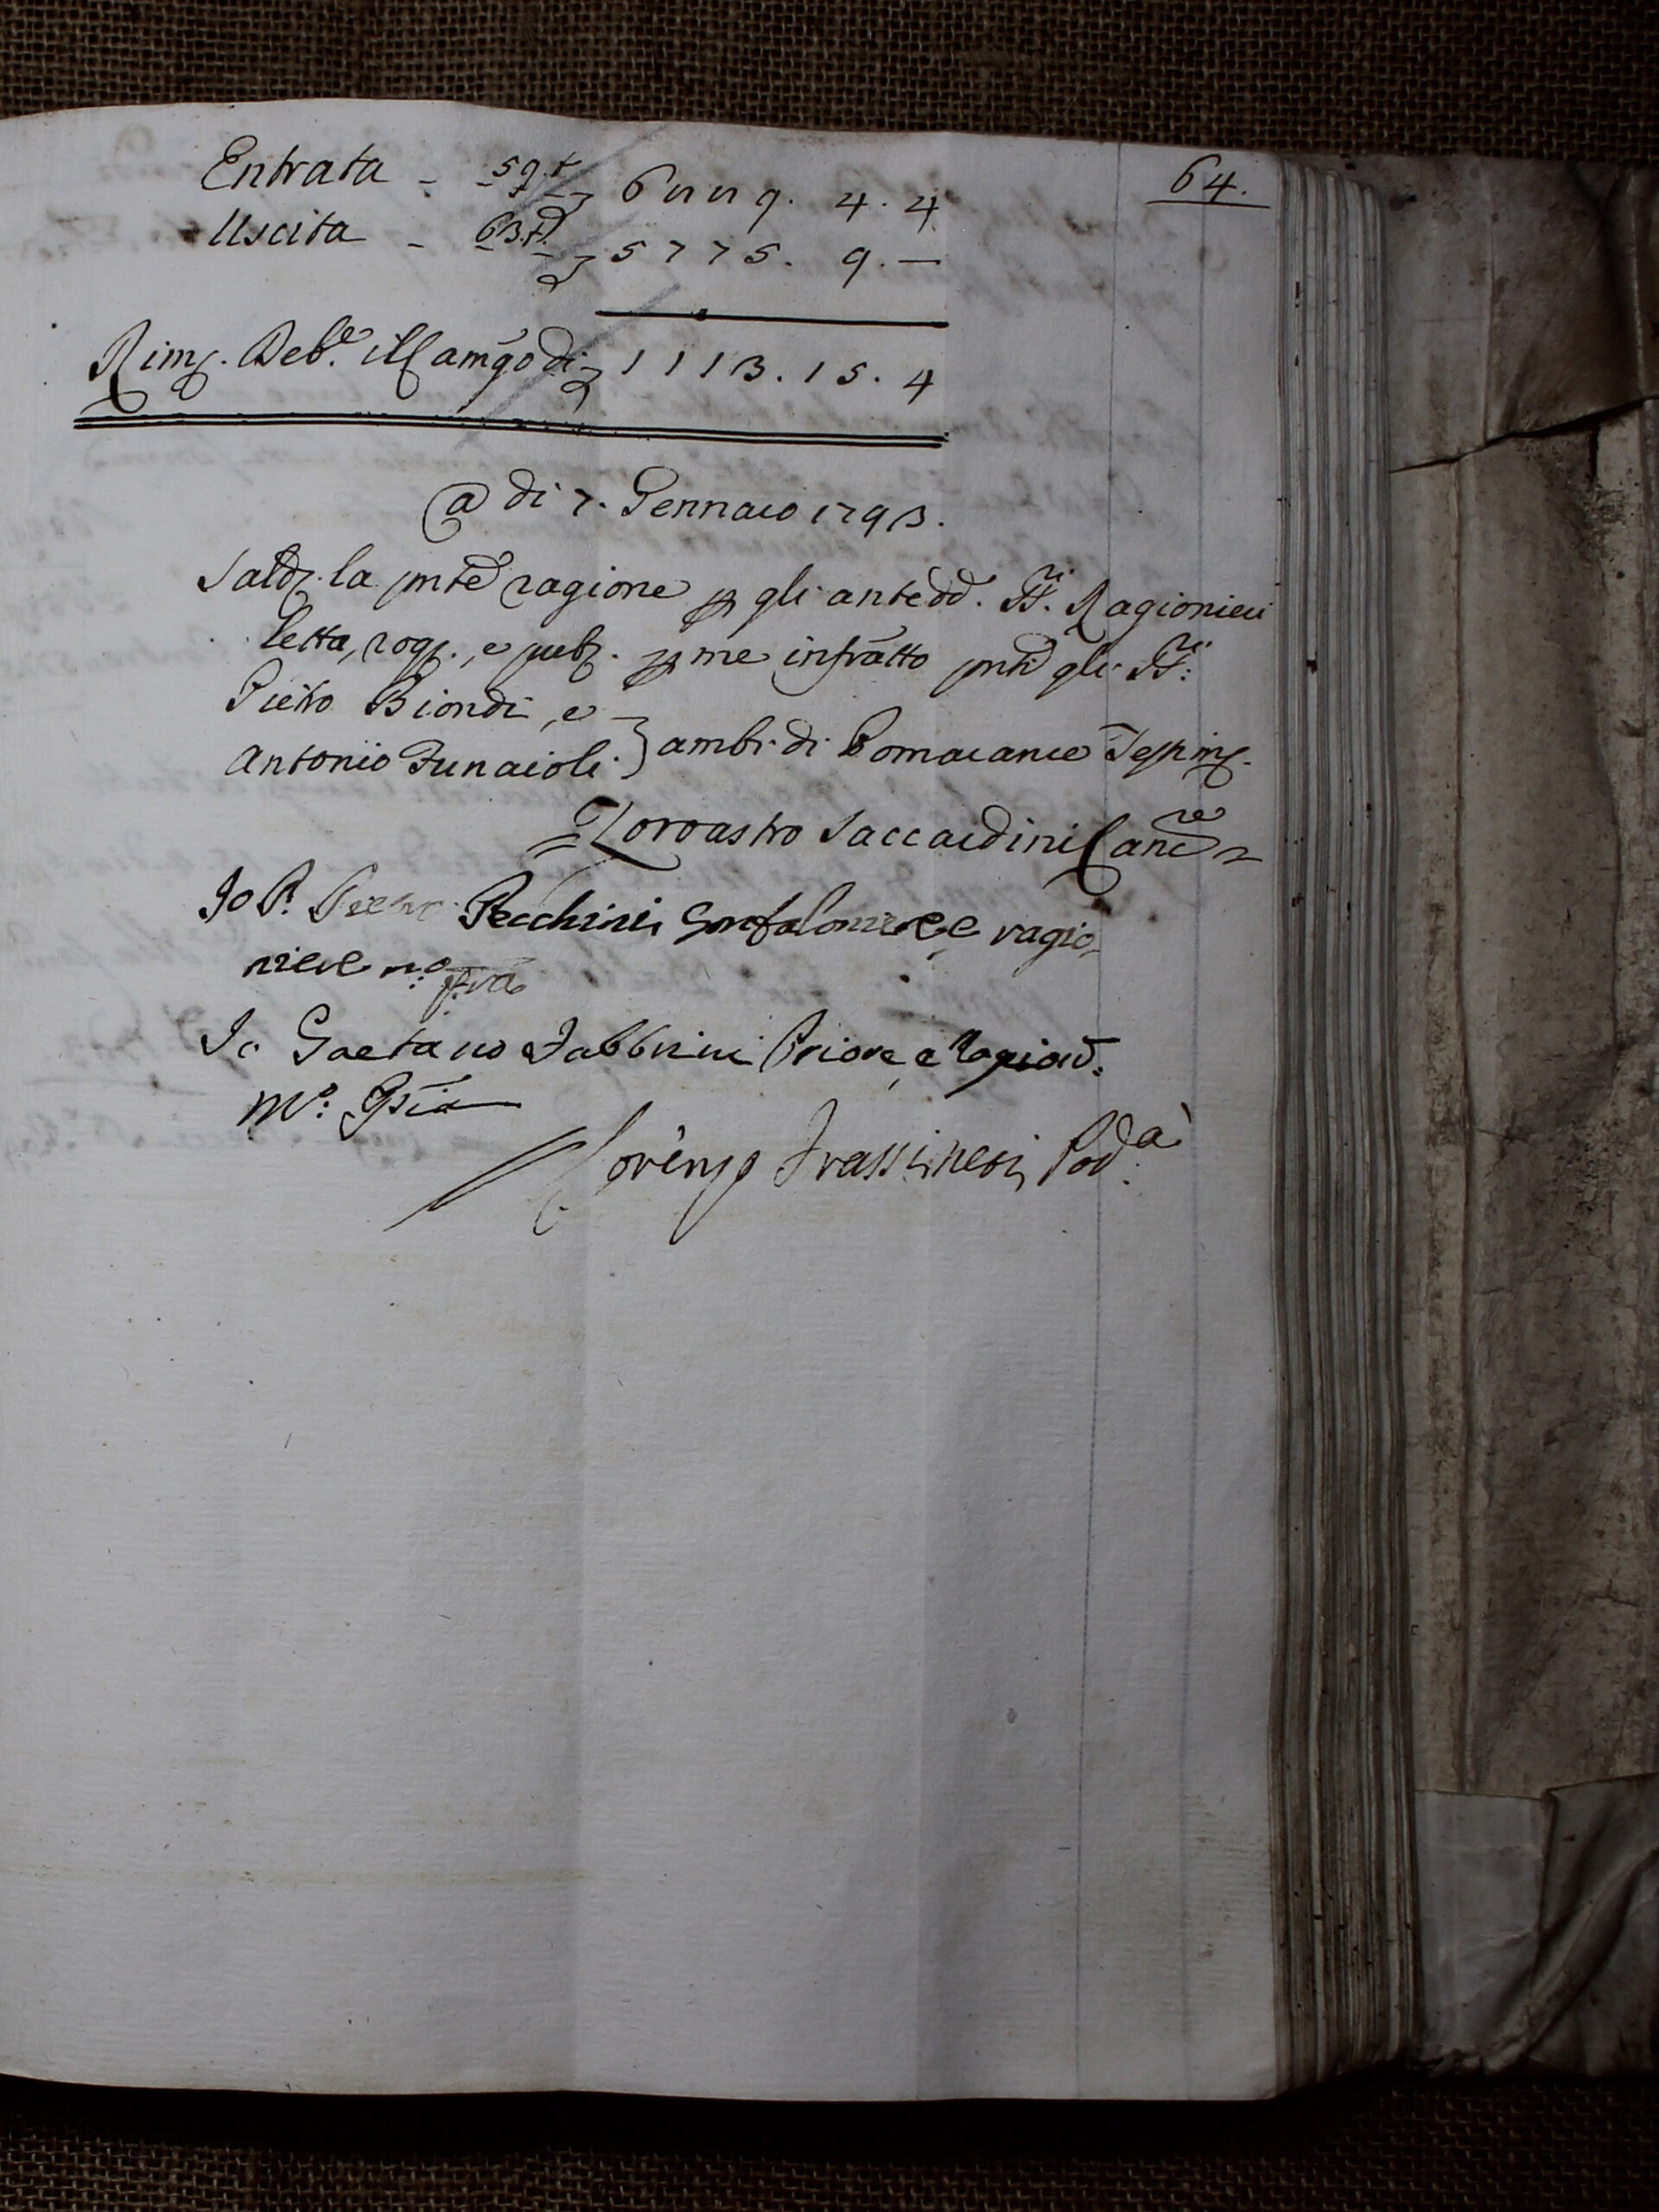 64.
Entrata - 59.t 6889. 4. 4
Uscita - 63.t. 5775. 9. —
Rimg. Deb.e il Camgo di 1113. 15. 4
@ di 7. Gennaio 1793.
Saldg. la pnte ragione p gli antedd. SS.ri Ragionieri
letta, rog., e pub. p me infratto pnti gli SS.ri
Pietro Biondi, e
Antonio Funaioli } ambi di Pomarance Tesping.
Zoroastro Saccardini Canc.re
Io P. Pietro Pecchini Gonfaloniere e ragio
niere m.o pra
Io Gaetano Fabbrini Priore, e Ragion.
M.o: Ppria
Lorenzo Frassinesi Pod.a